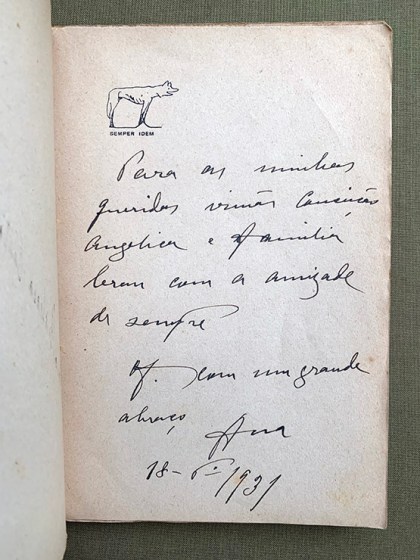 SEMPER IDEM
Para as minhas
queridas
Angelica e familia
com a amizade
de sempre
com um grande
abraço
Ana
18- 1931